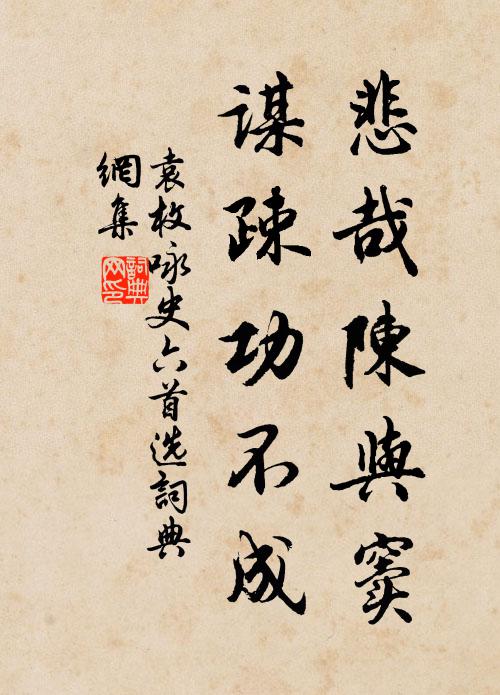 悲哉陳與竇
謀疎功不成
袁枚咏史六首選詞典
網集
詞典網印